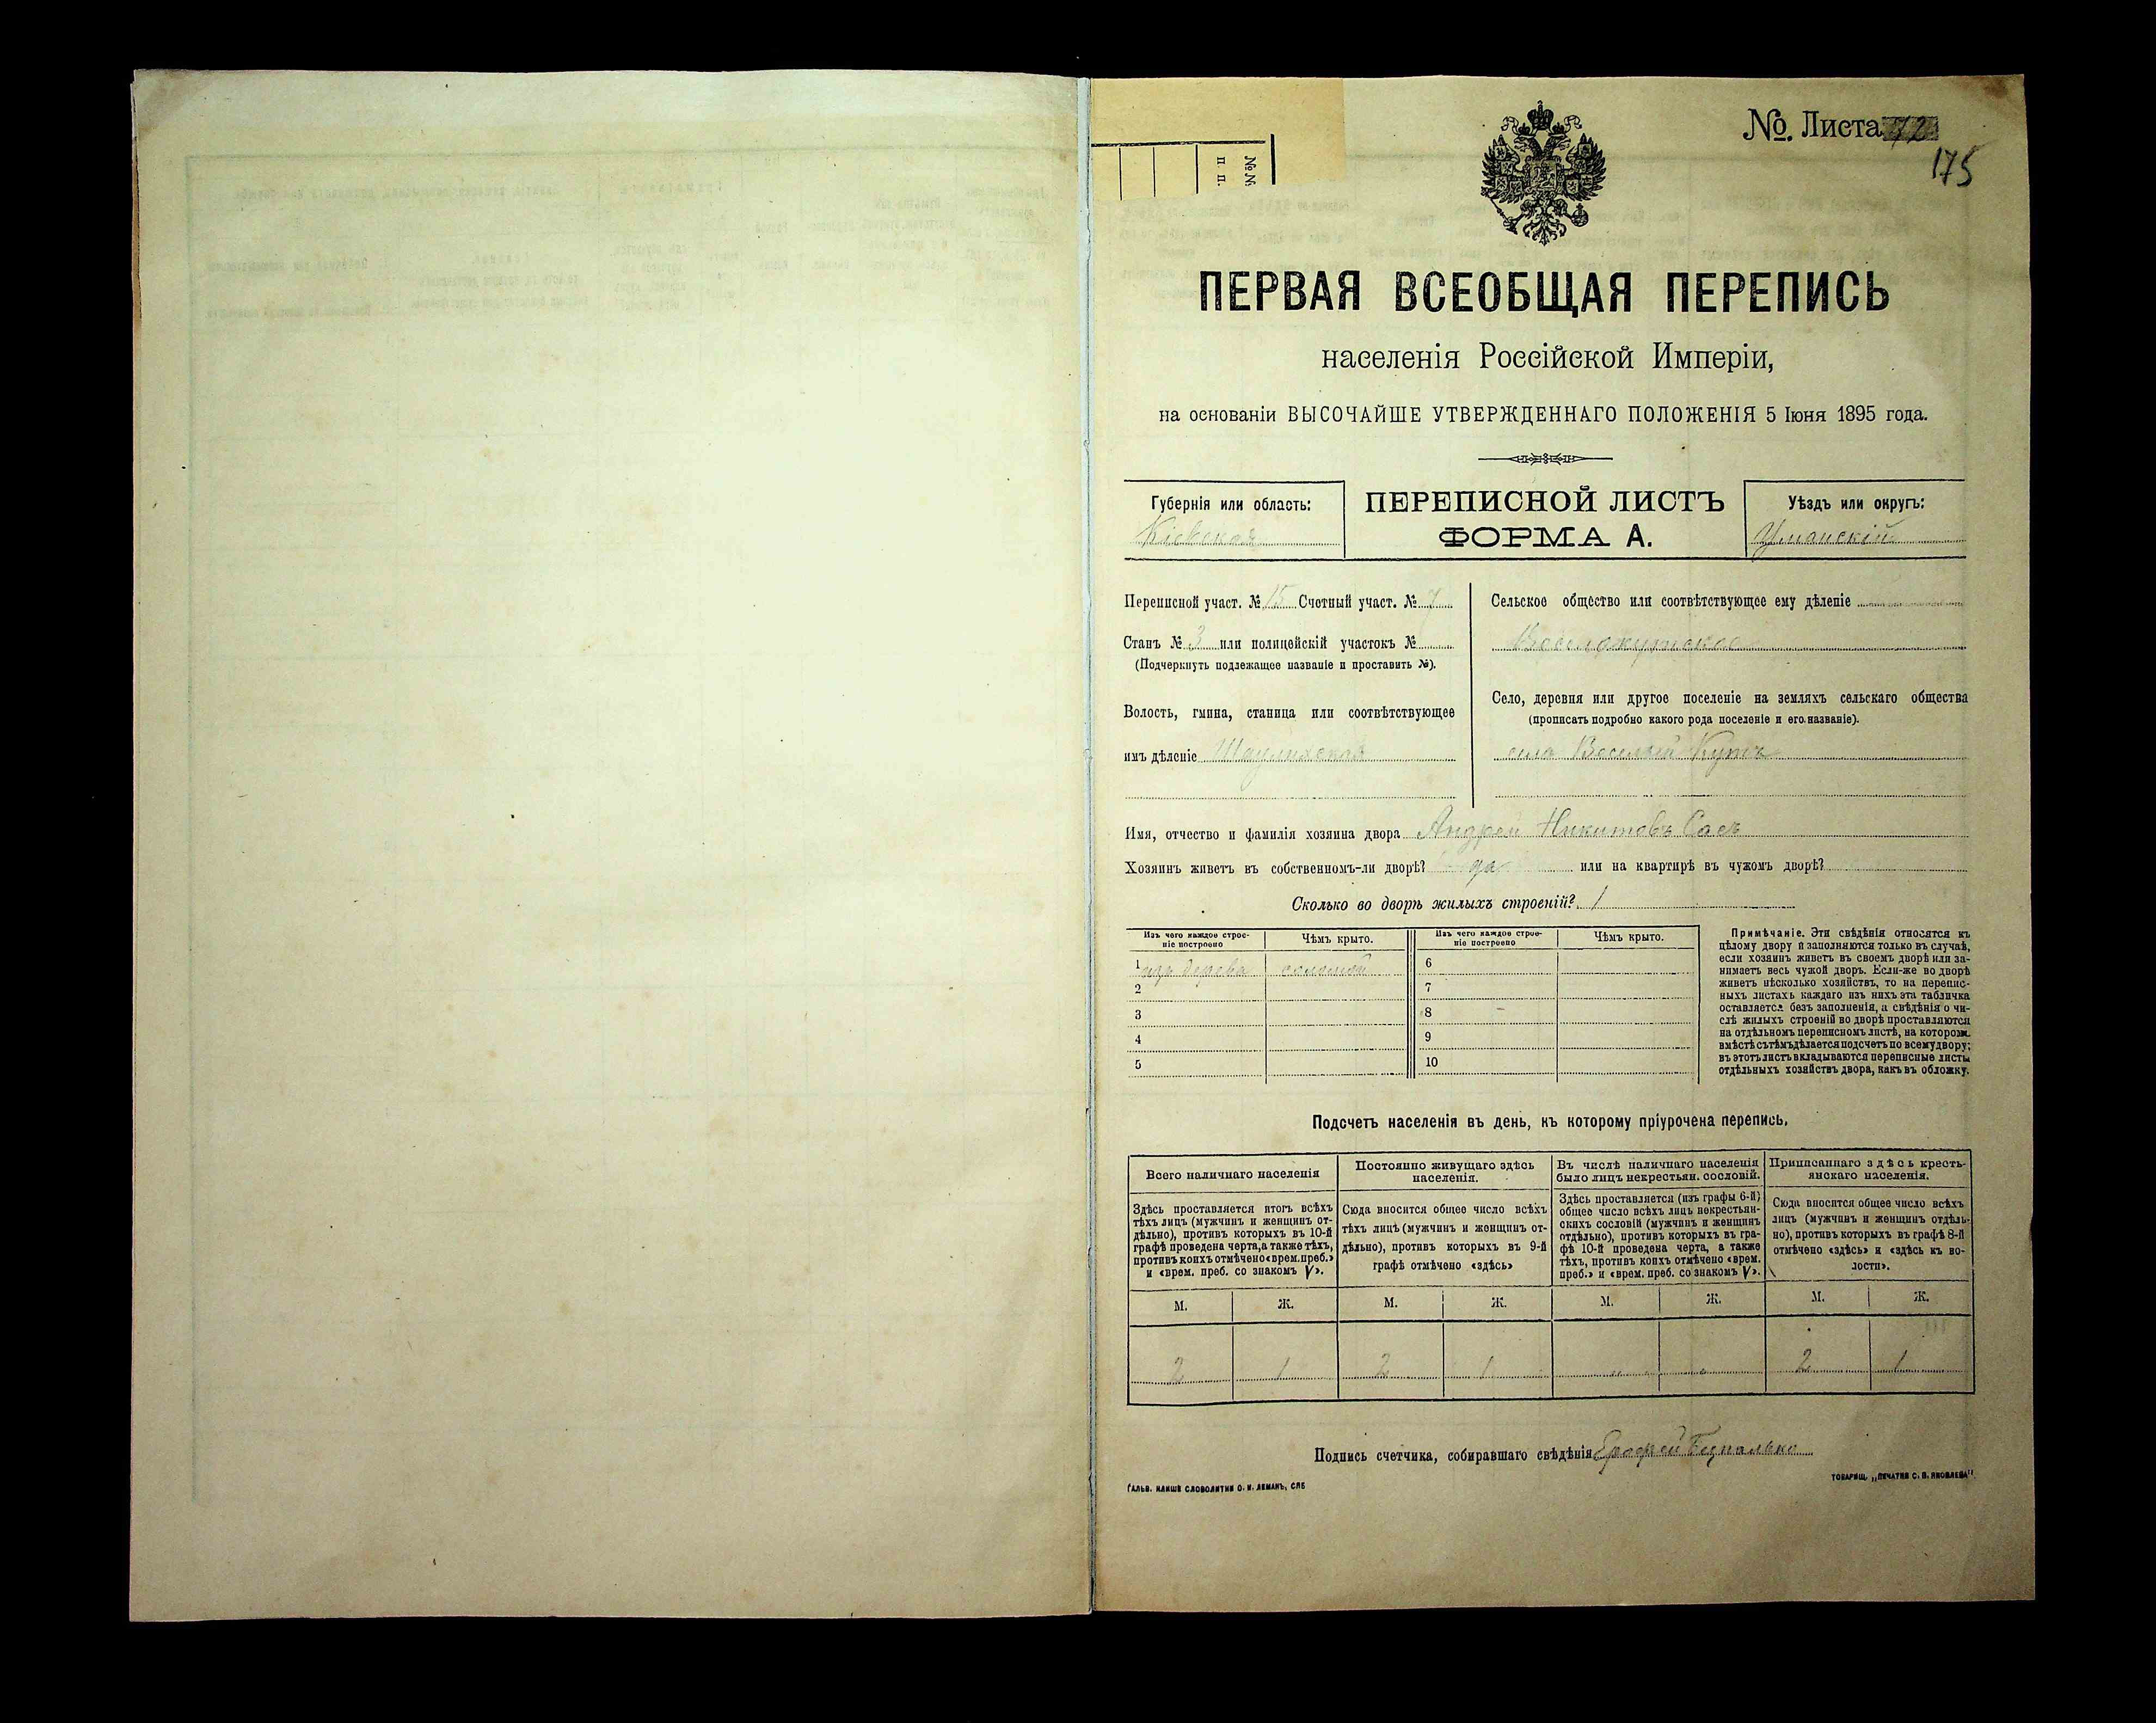 № Листа 72
175
№№
п. п.
ПЕРВАЯ ВСЕОБЩАЯ ПЕРЕПИСЬ
населенія Россійской Имперіи,
на основаніи ВЫСОЧАЙШЕ УТВЕРЖДЕННАГО ПОЛОЖЕНІЯ 5 Іюня 1895 года.
Губернія или область:
Кіевская
ПЕРЕПИСНОЙ ЛИСТЪ
ФОРМА А.
Уѣздъ или округъ:
Уманскій
Переписной участ. № 15 Счетный участ. № 7
Станъ № 3 или полицейскій участокъ №
(Подчеркнуть подлежащее названіе и проставить №).
Волость, гмина, станица или соотвѣтствующее
имъ дѣленіе
Сельское общество или соотвѣтствующее ему дѣленіе
Веселокутское
Село, деревня или другое поселеніе на земляхъ сельскаго общества
(прописать подробно какого рода поселеніе и его названіе).
село Веселый Кутъ
Имя, отчество и фамилія хозяина двора Андрей Никитовъ Саеъ
Хозяинъ живетъ въ собственномъ-ли дворѣ? да или на квартирѣ въ чужомъ дворѣ?
Сколько во дворѣ жилыхъ строеній? 1
Изъ чего каждое строе-
ніе построено
Чѣмъ крыто.
Изъ чего каждое строе-
ніе построено
Чѣмъ крыто.
1 изъ дерева соломой 6
2 7
3 8
4 9
5 10
Примѣчаніе. Эти свѣдѣнія относятся къ
цѣлому двору и заполняются только въ случаѣ,
если хозяинъ живетъ въ своемъ дворѣ или за-
нимаетъ весь чужой дворъ. Если-же во дворѣ
живетъ нѣсколько хозяйствъ, то на перепис-
ныхъ листахъ каждаго изъ нихъ эта табличка
оставляется безъ заполненія, а свѣдѣнія о чи-
слѣ жилыхъ строеній во дворѣ проставляются
на отдѣльномъ переписномъ листѣ, на которомъ
вмѣстѣ съ тѣмъ дѣлается подсчетъ по всему двору;
въ этотъ листъ вкладываются переписные листы
отдѣльныхъ хозяйствъ двора, какъ въ обложку.
Подсчетъ населенія въ день, къ которому пріурочена перепись.
Всего наличнаго населенія
Постоянно живущаго здѣсь
населенія.
Въ числѣ наличнаго населенія
было лицъ некрестьян. сословій.
Приписаннаго здѣсь кресть-
янскаго населенія.
Здѣсь проставляется итогъ всѣхъ
тѣхъ лицъ (мужчинъ и женщинъ от-
дѣльно), противъ которыхъ въ 10-й
графѣ проведена черта, а также тѣхъ,
противъ коихъ отмѣчено «врем. преб.»
и «врем. преб. со знакомъ V».
Сюда вносится общее число всѣхъ
тѣхъ лицъ (мужчинъ и женщинъ от-
дѣльно), противъ которыхъ въ 9-й
графѣ отмѣчено «здѣсь»
Здѣсь проставляется (изъ графы 6-й)
общее число всѣхъ лицъ некрестьян-
скихъ сословій (мужчинъ и женщинъ
отдѣльно), противъ которыхъ въ гра-
фѣ 10-й проведена черта, а также
тѣхъ, противъ коихъ отмѣчено «врем.
преб.» и «врем. преб. со знакомъ V».
Сюда вносится общее число всѣхъ
лицъ (мужчинъ и женщинъ отдѣль-
но), противъ которыхъ въ графѣ 8-й
отмѣчено «здѣсь» и «здѣсь къ во-
лости».
М. Ж. М. Ж. М. Ж. М. Ж.
2 1 2 1 " " 2 1
Подпись счетчика, собиравшаго свѣдѣнія
ГАЛЬВ. КЛИШЕ СЛОВОЛИТНИ О. И. ЛЕМАНЪ, СПБ
ТОВАРИЩ. „ПЕЧАТНЯ С. П. ЯКОВЛЕВА"